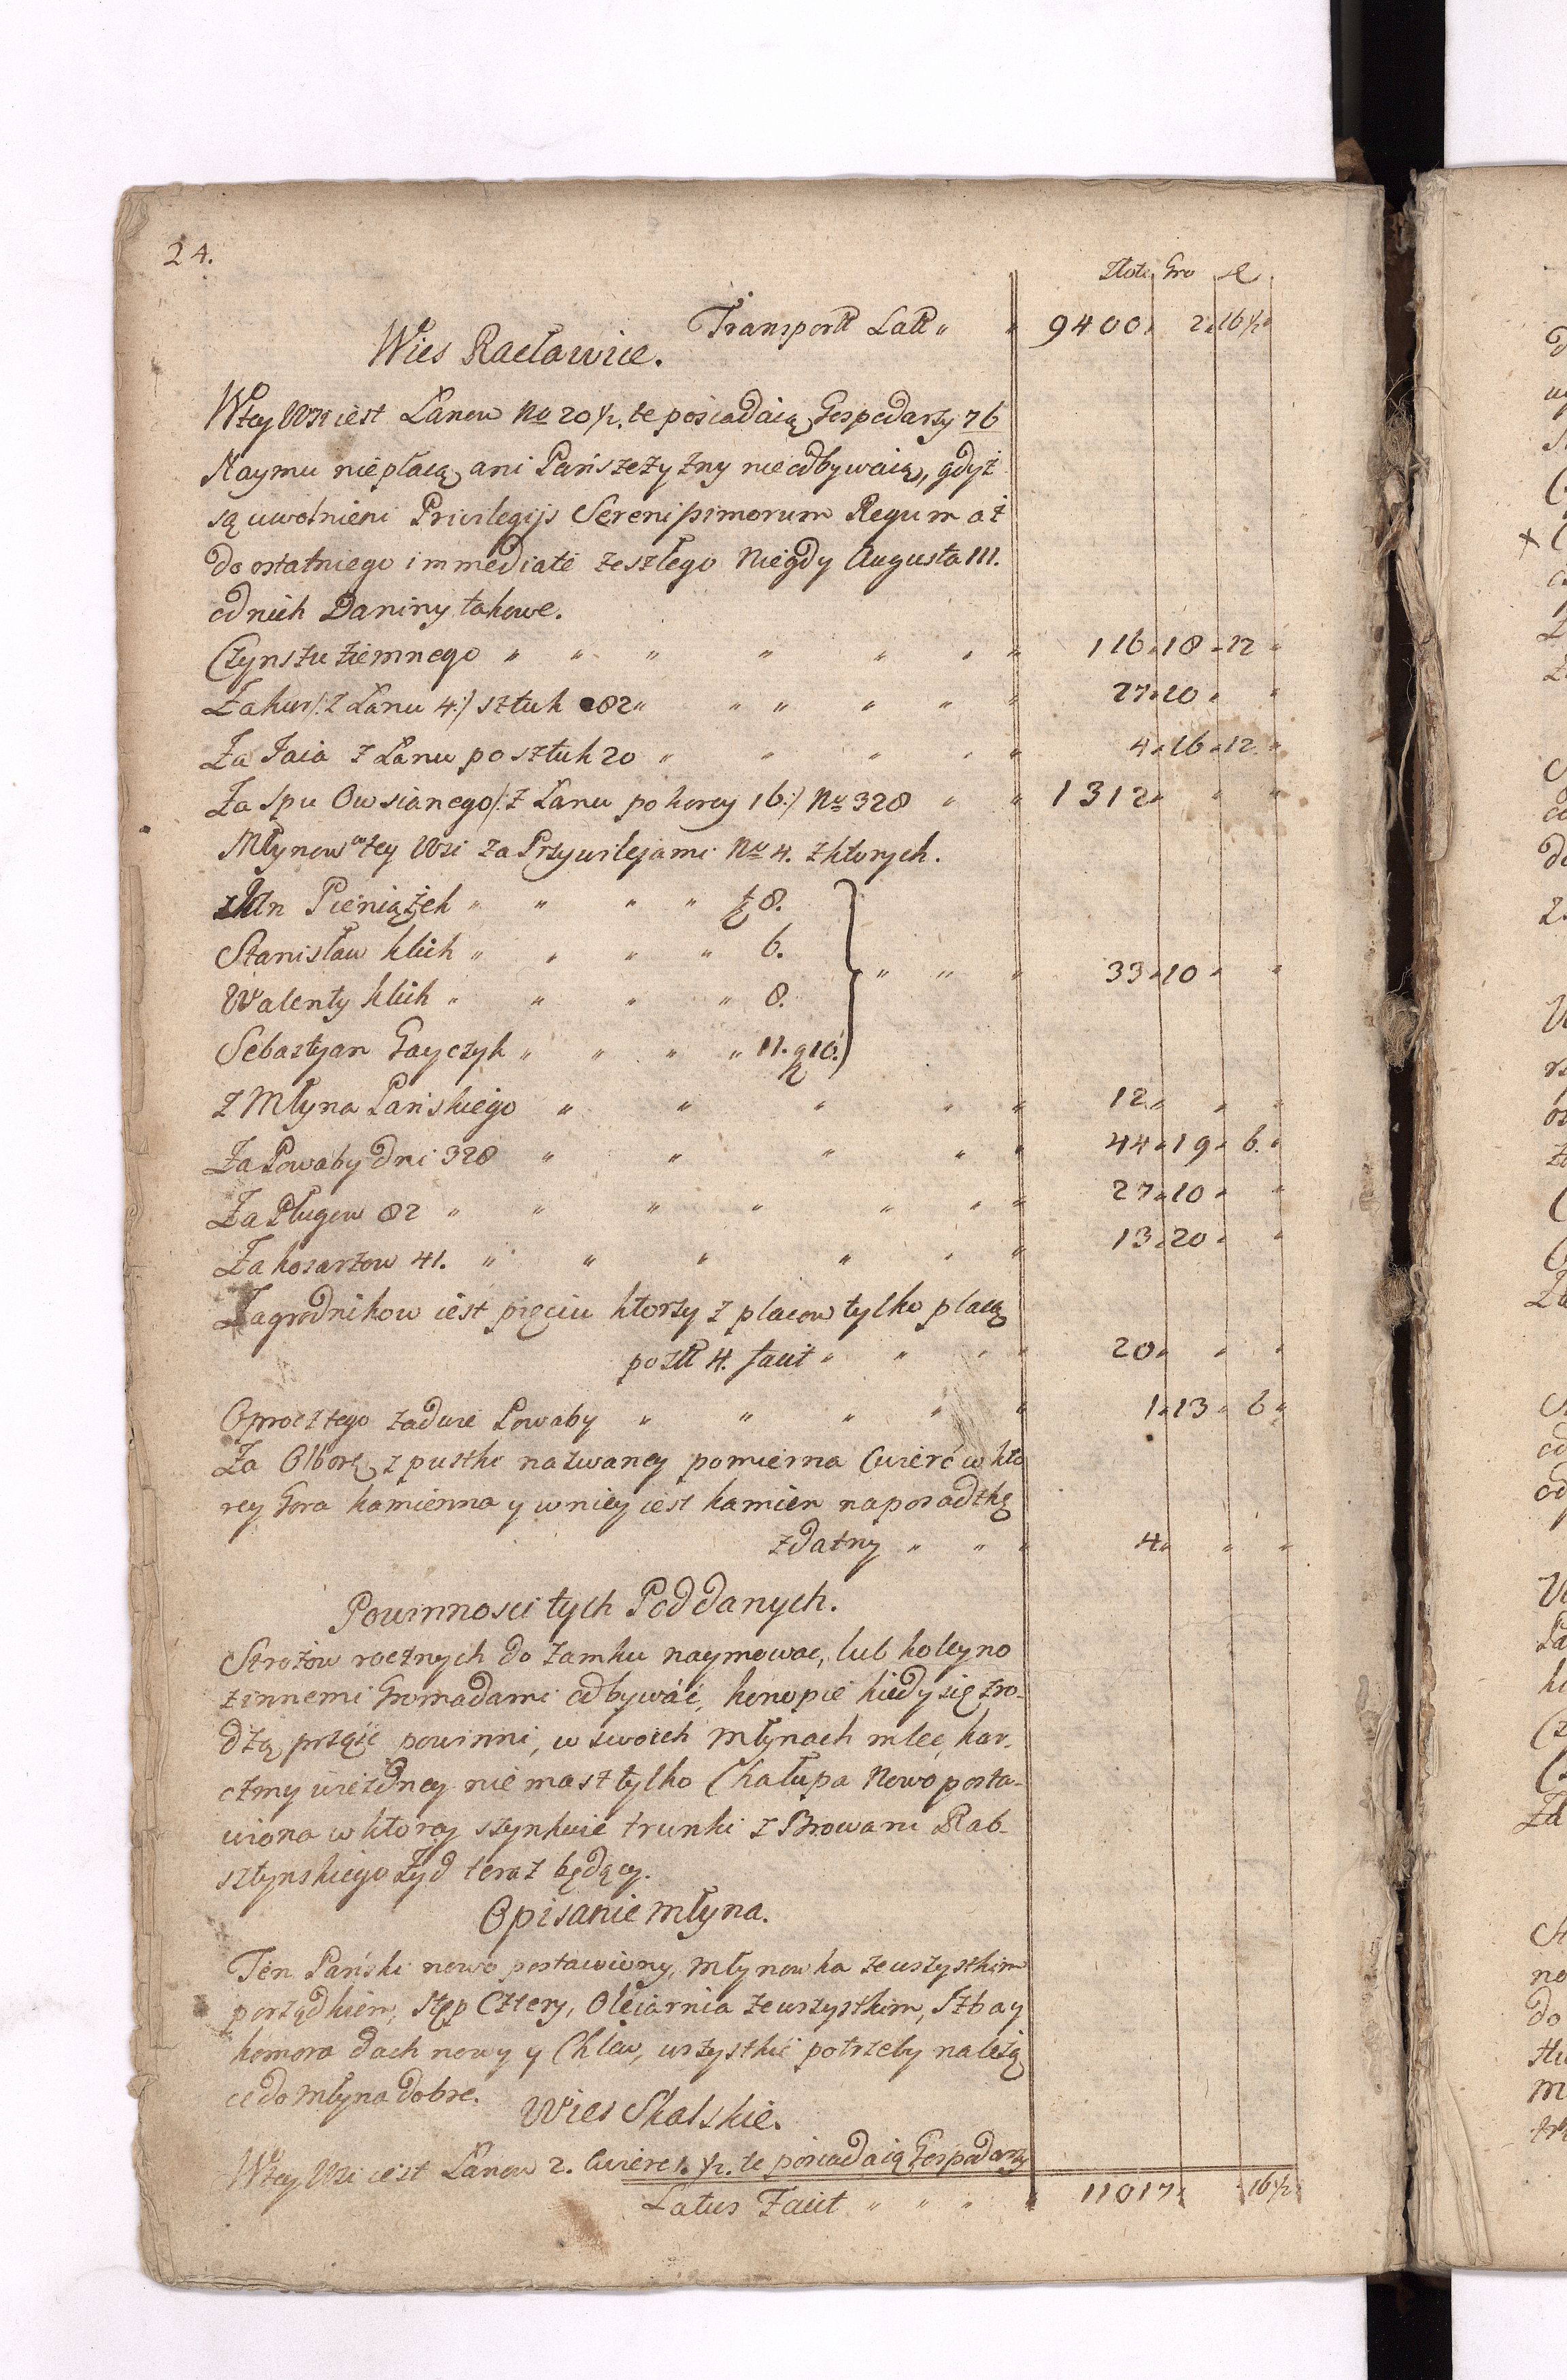 24.
Złote Gro d
Transportt Latt „ „ 9400 „ 2 „ 16½ „
Wies Racławice.
Wtey Wsi iest Łanow No 20 ½. te posiadaią Gospodarzy 76
Naymu niepłacą, ani Pańszczyzny nieodbywaią, gdyż
są uwolnieni Privilegijs Serenissimorum Regum aż
do ostatniego immediate zeszłego Niegdy Augusta III.
od nich Daniny takowe.
Czynszu ziemnego „ „ „ „ „ „ „ 116 „ 18 „ 12 „
Za kur /: z Łanu 4 :/ sztuk 82 „ „ „ „ „ „ 27 „ 10 „ „
Za Jaia z Łanu po sztuk 20 „ „ „ „ „ 4 „ 16 „ 12 „
Za Spu Owsianego /: z Łanu po korcy 16 :/ No 328 „ „ 1312 „ „ „
Młynow w tey Wsi za Przywilejami No 4. z ktorych.
Jan Pieniążek „ „ „ „ zł 8.
Stanisław Klich „ „ „ „ 6.
„ „ „ 33 „ 10 „ „
Walenty Klich „ „ „ „ 8.
Sebastyan Gayczyk „ „ „ „ 11. g 10.
z Młyna Pańskiego „ „ „ „ „ 12 „ „ „
Za Powaby dni 328 „ „ „ „ „ 44 „ 19 „ 6 „
Za Pługow 82 „ „ „ „ „ „ „ 27 „ 10 „ „
Za kosarzow 41. „ „ „ „ „ „ 13 „ 20 „ „
Zagrodnikow iest pięciu ktorzy z placow tylko płacą
po złł 4. facit „ „ „ „ 20 „ „ „
Oprocz tego za dwie Powaby „ „ „ „ „ 1 „ 13 „ 6 „
Za Olborę z pustki nazwaney pomierna Cwierć w kto
rey Gora kamienna y w niey iest kamien na posadzkę
zdatny „ „ „ 4 „ „ „
Powinnosci tych Poddanych.
Strożow rocznych do Zamku naymowac, lub koleyno
z innemi Gromadami odbywáć, konopie kiedy się zro-
dzą prząść powinni, w swoich Młynach mlec, kar-
czmy wiezdney nie masz tylko Chałupa Nowo posta-
wiona w ktorey szynkuie trunki z Browaru Rab-
sztynskiego Żyd teraz będący.
Opisanie młyna.
Ten Pański nowo postawiony, Młynowka ze wszystkim
porządkiem, Stęp Cztery, Oleiarnia ze wszystkim, Izba y
komora dach nowy y Chlew, wszystkie potrzeby należą
ce do Młyna dobre.
Wies Skalskie.
Wtey Wsi iest Łanow 2. Cwierc 1. ½. te posiadaią Gospodarzy
Latus Facit „ „ „ „ 11017 „ 16½